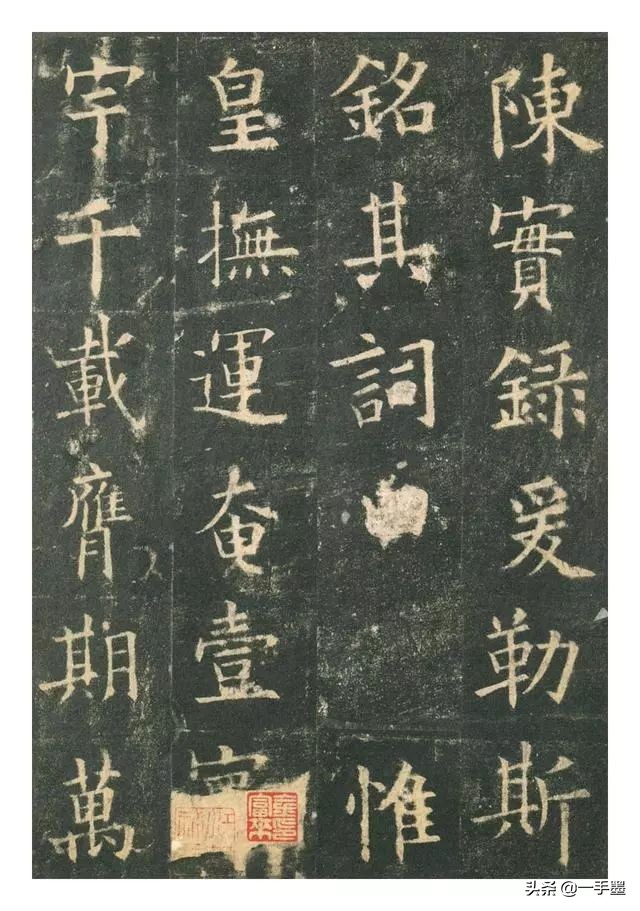 陳實錄爰勒斯
銘其詞 惟
皇撫運奄壹
宇千載膺期萬
头条 @一手墨